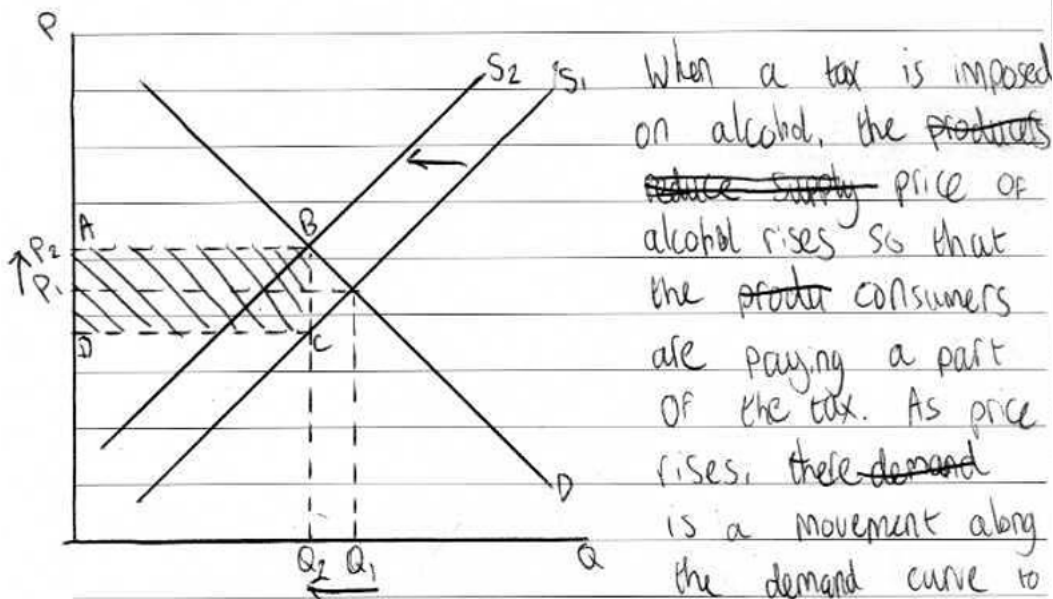 P
S2
S1
When a tax is imposed
on alcohol, the producers
reduce supply price of
alcohol rises so that
the produ consumers
are paying a part
of the tax. As price
rises, there demand
is a movement along
the demand curve to
A
B
P2
P1
D
C
D
Q2
Q1
Q